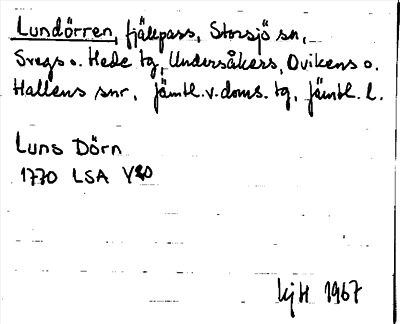 Lundörren, fjällpass, Storsjö sn,
Svegs o. Hede tg, Undersåkers, Ovikens o.
Hallens snr, Jämtl. v. doms. tg, Jämtl. l.
Luns Dörn
1770 LSA Y20
kjH 1967